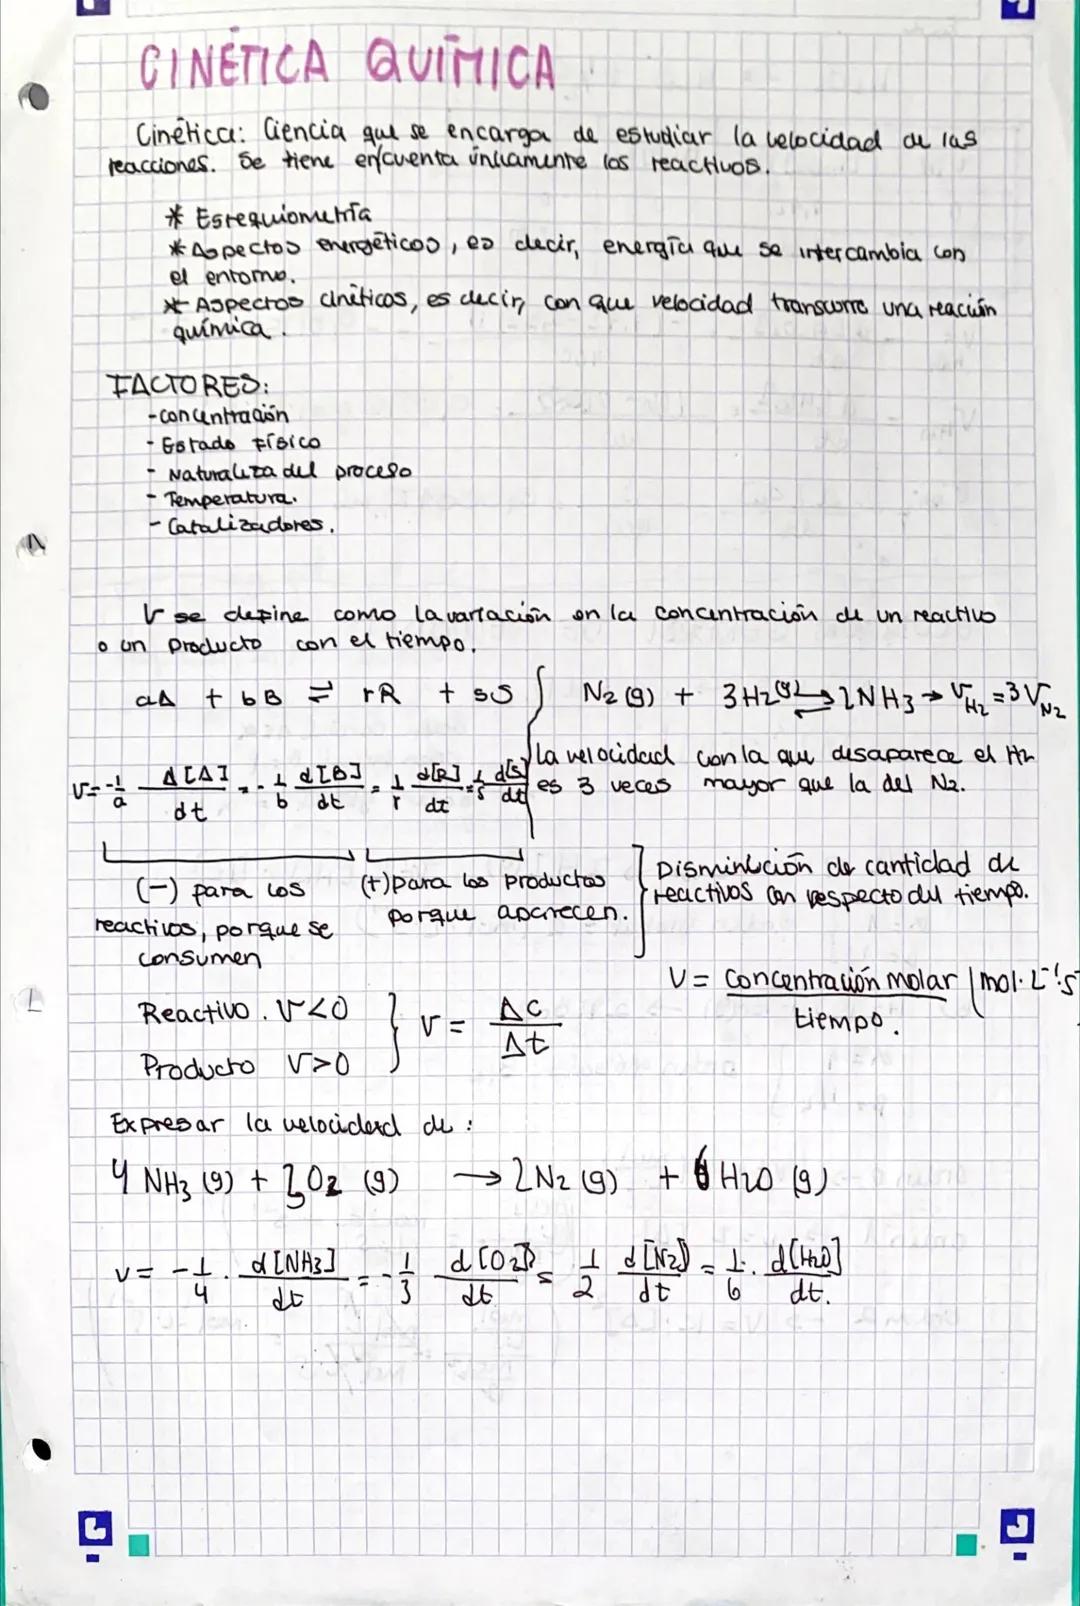 CINÉTICA QUÍMICA
Cinética: Ciencia que se encarga de estudiar la velocidad de las
reacciones. Se tiene en cuenta únicamente los reactivos.
* Estequiometría
* Aspectos energéticos, es decir, energía que se intercambia con
el entorno.
* Aspectos cinéticos, es decir, con que velocidad transcurre una reacción
química.
FACTORES:
- concentración
- Estado físico
- Naturaleza del proceso
- Temperatura.
- Catalizadores.
V se define como la variación en la concentración de un reactivo
o un producto con el tiempo.
aA + bB ⇌ rR + sS
N2 (g) + 3H2(g) ⇌ 2NH3 → V H2 = 3V N2
La velocidad con la que desaparece el H2
es 3 veces mayor que la del N2.
V = -1/a Δ[A]/dt = -1/b d[B]/dt = 1/r d[R]/dt = 1/s d[S]/dt
(-) para los
reactivos, porque se
consumen
(+) para los productos
porque aparecen.
Disminución de cantidad de
reactivos con respecto del tiempo.
V = Concentración molar / tiempo. | mol·L⁻¹·s⁻
Reactivo. V<0
Producto V>0
V = Δc/Δt
Expresar la velocidad de:
4 NH3 (g) + 3O2 (g) → 2N2 (g) + 6H2O (g)
V = -1/4 · d[NH3]/dt = -1/3 d[O2]/dt = 1/2 d[N2]/dt = 1/6 · d[H2O]/dt.